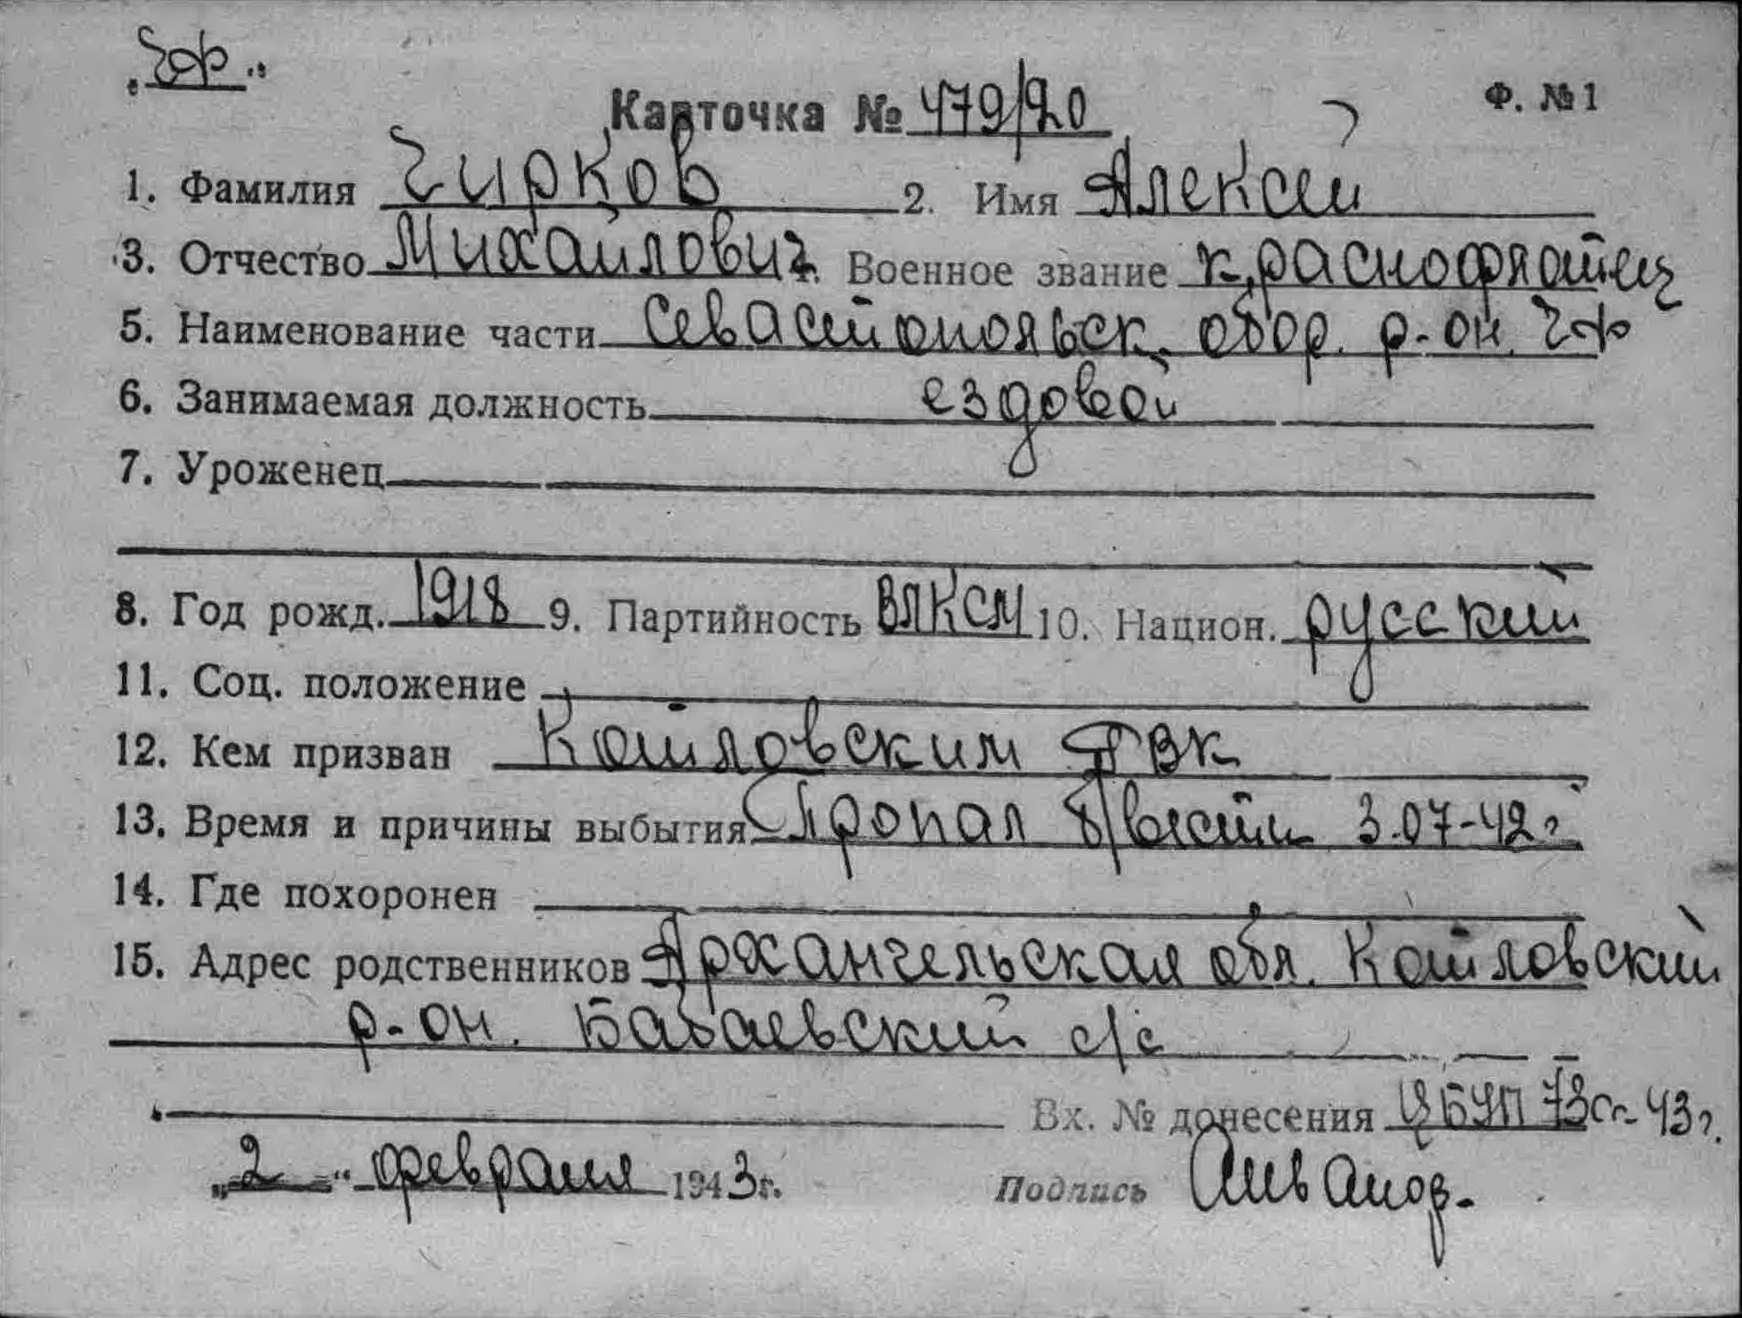 „ЧФ"
Карточка № 479/20 Ф. №1
1. Фамилия Чирков 2. Имя Алексей
3. Отчество Михайлович 4. Военное звание краснофлотец
5. Наименование части Севастопольск. обор. р-он. ЧФ
6. Занимаемая должность ездовой
7. Уроженец
8. Год рожд. 1918 9. Партийность ВЛКСМ 10. Национ. русский
11. Соц. положение
12. Кем призван Котловским РВК
13. Время и причины выбытия Пропал б/вести 3.07-42г
14. Где похоронен
15. Адрес родственников Архангельская обл. Котловский
р-он. Бабаевский с/с
Вх. № донесения ЦБУП 73сс-43г.
„2" февраля 1943г. Подпись